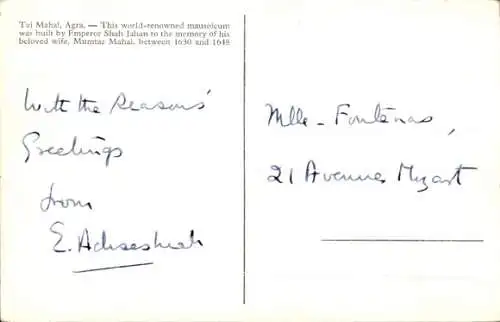 Taj Mahal, Agra. — This world-renowned mausoleum
was built by Emperor Shah Jahan to the memory of his
beloved wife, Mumtaz Mahal, between 1630 and 1648
With the Seasons'
Greetings
from
E.
Mlle - Fontenas,
21 Avenue Mozart